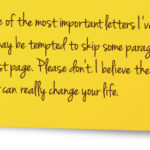 e of the most important letters I'v
may be tempted to skip some parag
st page. Please don't. I believe the
can really change your life.